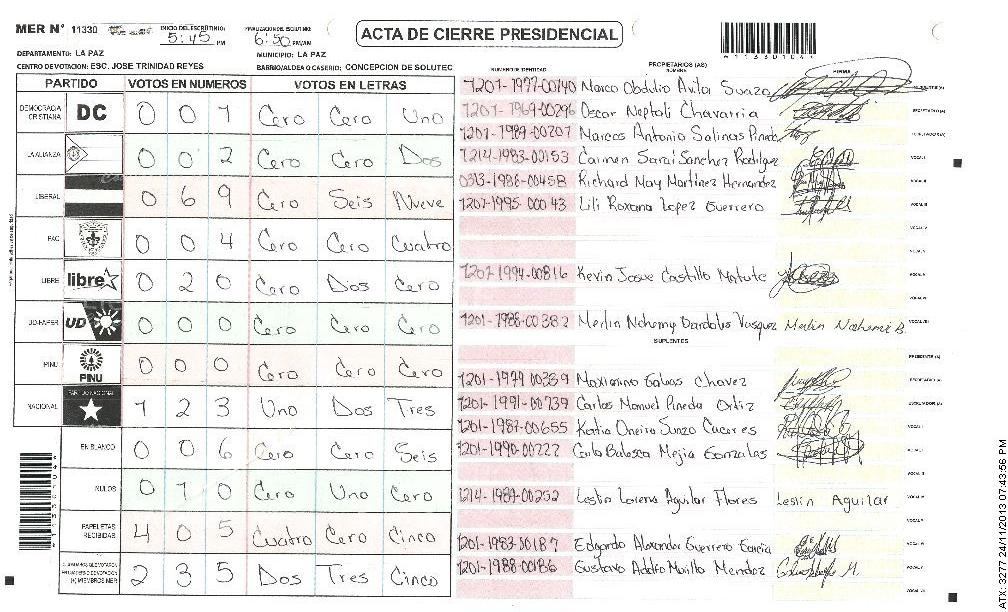 MER Nº 11330 INICIO DEL ESCRUTINIO: 5:45 PM FINALIZACION DEL ESCRUTINIO: 6:50 PM/AM
ACTA DE CIERRE PRESIDENCIAL
DEPARTAMENTO: LA PAZ MUNICIPIO: LA PAZ
CENTRO DE VOTACION: ESC. JOSE TRINIDAD REYES BARRIO/ALDEA O CASERIO: CONCEPCION DE SOLUTEC
PARTIDO VOTOS EN NUMEROS VOTOS EN LETRAS
DEMOCRACIA CRISTIANA DC 0 0 1 Cero Cero Uno
LA ALIANZA 0 0 2 Cero Cero Dos
LIBERAL 0 6 9 Cero Seis Nueve
PAC 0 0 4 Cero Cero Cuatro
LIBRE libre 0 2 0 Cero Dos Cero
UD-FAPER UD 0 0 0 Cero Cero Cero
PINU PINU 0 0 0 Cero Cero Cero
NACIONAL PARTIDO NACIONAL 1 2 3 Uno Dos Tres
EN BLANCO 0 0 6 Cero Cero Seis
NULOS 0 1 0 Cero Uno Cero
PAPELETAS RECIBIDAS 4 0 5 Cuatro Cero Cinco
(+) MIEMBROS MER 2 3 5 Dos Tres Cinco
NUMERO DE IDENTIDAD PROPIETARIOS (AS) NOMBRE FIRMA
1201-1977-00140 Marco Obdulio Avila Suazo
1201-1969-00296 Oscar Neptali Chavarria
1201-1989-00207 Marcos Antonio Salinas Pineda
1214-1983-00153 Carmen Sarai Sanchez Rodriguez VOCAL I
0313-1986-00458 Richard May Martinez Hernandez VOCAL II
1201-1995-00043 Lili Roxana Lopez Guerrero VOCAL III
VOCAL IV
VOCAL V
1201-1994-00816 Kevin Josue Castillo Matute
1201-1986-00382 Merlin Nohemy Bardales Vasquez Merlin Nohemi B.
SUPLENTES
PRESIDENTE (A)
1201-1979-00339 Maximino Galvas Chavez SECRETARIO (A)
1201-1991-00739 Carlos Manuel Pineda Ortiz ESCRUTADOR (A)
1201-1987-00655 Katia Oneira Suazo Caceres VOCAL I
1201-1990-00222 Mejia Gonzales
1214-1989-00252 Leslin Lorena Aguilar Flores Leslin Aguilar
1201-1983-00187 Edgardo Alexander Guerrero Garcia
1201-1988-00186 Gustavo Adolfo Murillo Mendez
11330104
ATX: 3277 24/11/2013 07:43:56 PM